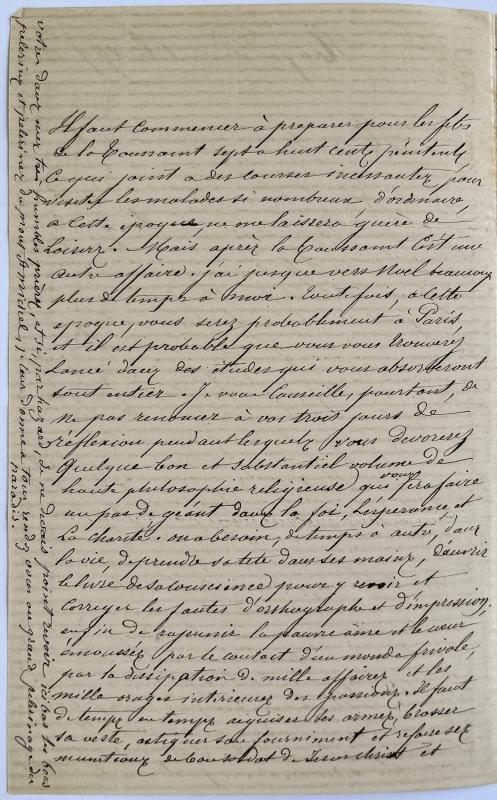 Il faut commencer à preparer pour les fêtes
de la Toussaint sept a huit cents pénitents,
Ce qui joint a des courses incessantes pour
visiter les malades si nombreux d'ordinaire,
a cette epoque, ne me laissera guère de
Loisirs. Mais après la Toussaint c'est une
autre affaire. j'ai jusque vers Noel beaucoup
plus de temps à moi. Toutefois, a cette
epoque, vous serez probablement à Paris
et il est probable que vous vous trouverez
Lancé dans des études qui vous absorberont
tout entier. Je vous conseille, pourtant, de
ne pas renoncer à vos trois jours de
réflexion pendant lesquels vous devorerez
quelque bon et substantiel volume de
haute philosophie religieuse qui vous fera faire
un pas de géant dans la foi, l'espérance, et
La charité. on a besoin, de temps à autre, dans
la vie, de prendre sa tete dans ses mains, d'ouvrir
le livre de sa conscience pour y revoir et
corriger les fautes d'orthographe et d'impression,
enfin de rajeunir la pauvre âme et le cœur
émoussés par le contact d'un monde frivole,
par la dissipation de mille affaires et les
mille orages interieurs des passions. Il faut
de temps en temps aiguiser ses armes, brosser
sa veste, astiquer son fourniment et refaire ses
munitions de bon soldat de Jesus Christ et
votre dans mes très humbles prières, et si, par hazard, je ne devais point revoir ici bas les bons
pelerins et pelerines du mont St michel, je leur donne a tous rendez vous au grand pelerinage du
paradis.